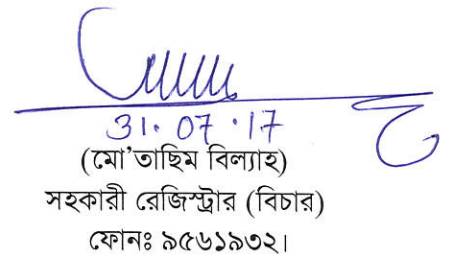 31. 07 '17
(মো'তাছিম বিল্যাহ)
সহকারী রেজিস্ট্রার (বিচার)
ফোনঃ ৯৫৬১৯৩২।